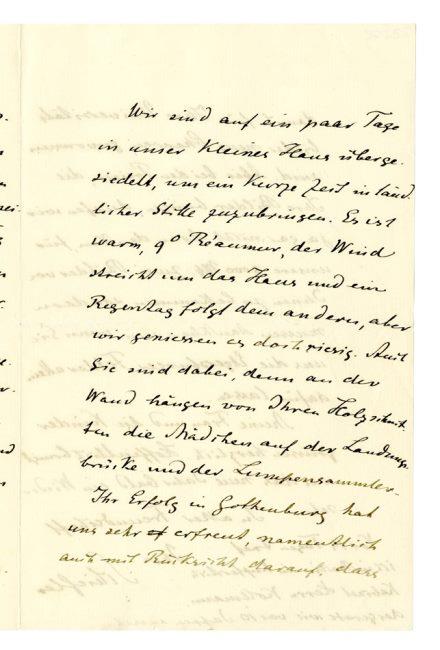 Wir sind auf ein paar Tage
in unser kleines Haus überge-
siedelt, um ein kurze Zeit in länd-
licher Stille zuzubringen. Es ist
warm, 9° Réaumur, der Wind
streicht um das Haus und ein
Regentag folgt dem anderen, aber
wir geniessen es doch riesig. Auch
Sie sind dabei, denn an der
Wand hängen von Ihren Holzschnit-
ten die Mädchen auf der Landungs-
brücke und der Lumpensammler.
Ihr Erfolg in Gothenburg hat
uns sehr erfreut, namentlich
auch mit Rücksicht darauf, dass